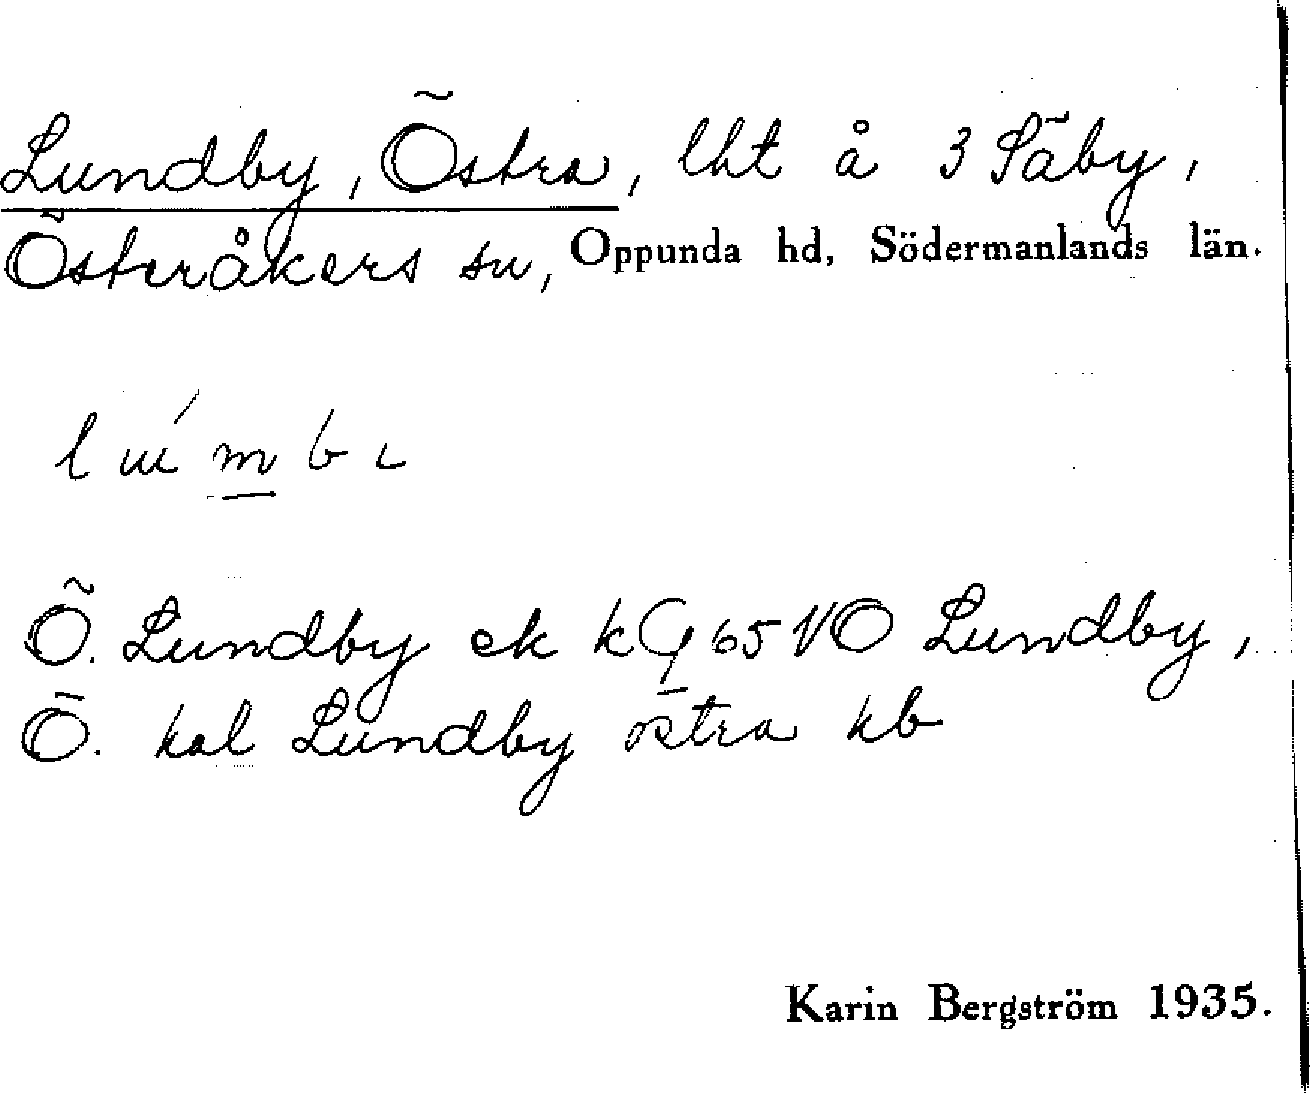 Lundby, Östra, lht å 3 Säby,
Österåkers sn, Oppunda hd, Södermanlands län.
Ö. Lundby ek k 65 NO Lundby,
Ö. kal Lundby östra kb
Karin Bergström 1935.